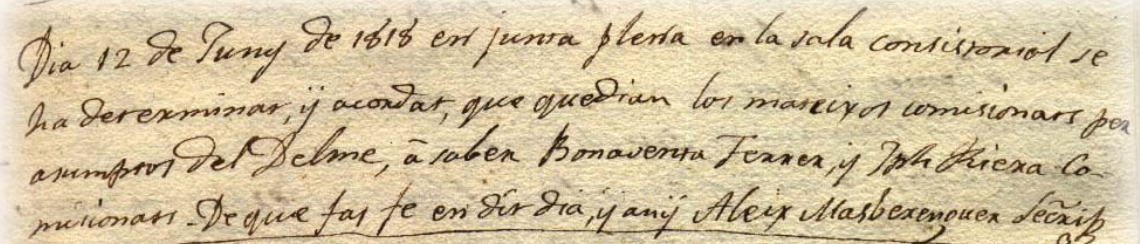 Dia 12 de Juny de 1818 en junta plena en la sala consistorial se
ha determinat, ÿ acordat, que quedian los mateixos comisionats per
asumptos del Delme, â saber Bonaventa Ferrer, ÿ Jph Riera Co-
misionats. De que fas fe en dit dia, ÿ anÿ Aleix Masberenguer Secrit